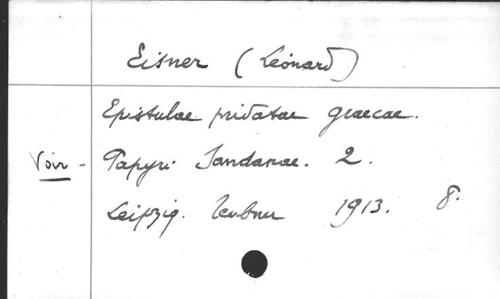 Eisner (Léonard)
Epistulae privatae graecae.
Voir - Papyri Iandanae. 2.
Leipzig. Teubner 1913. 8.